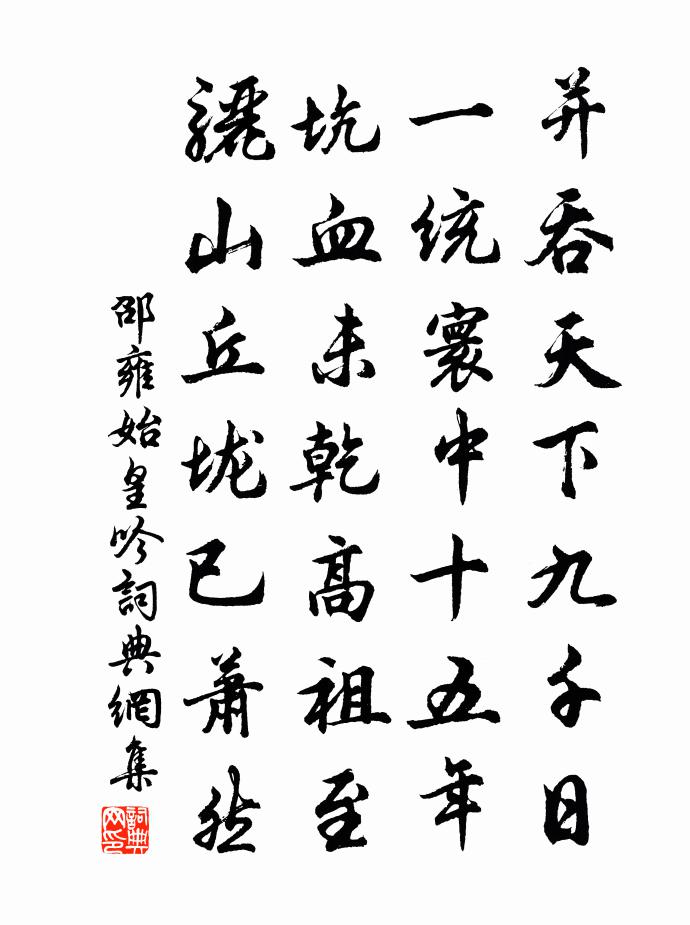 并吞天下九千日
一统寰中十五年
坑血未乾高祖至
骊山丘垅已萧然
邵雍始皇吟詞典網集
詞典网印